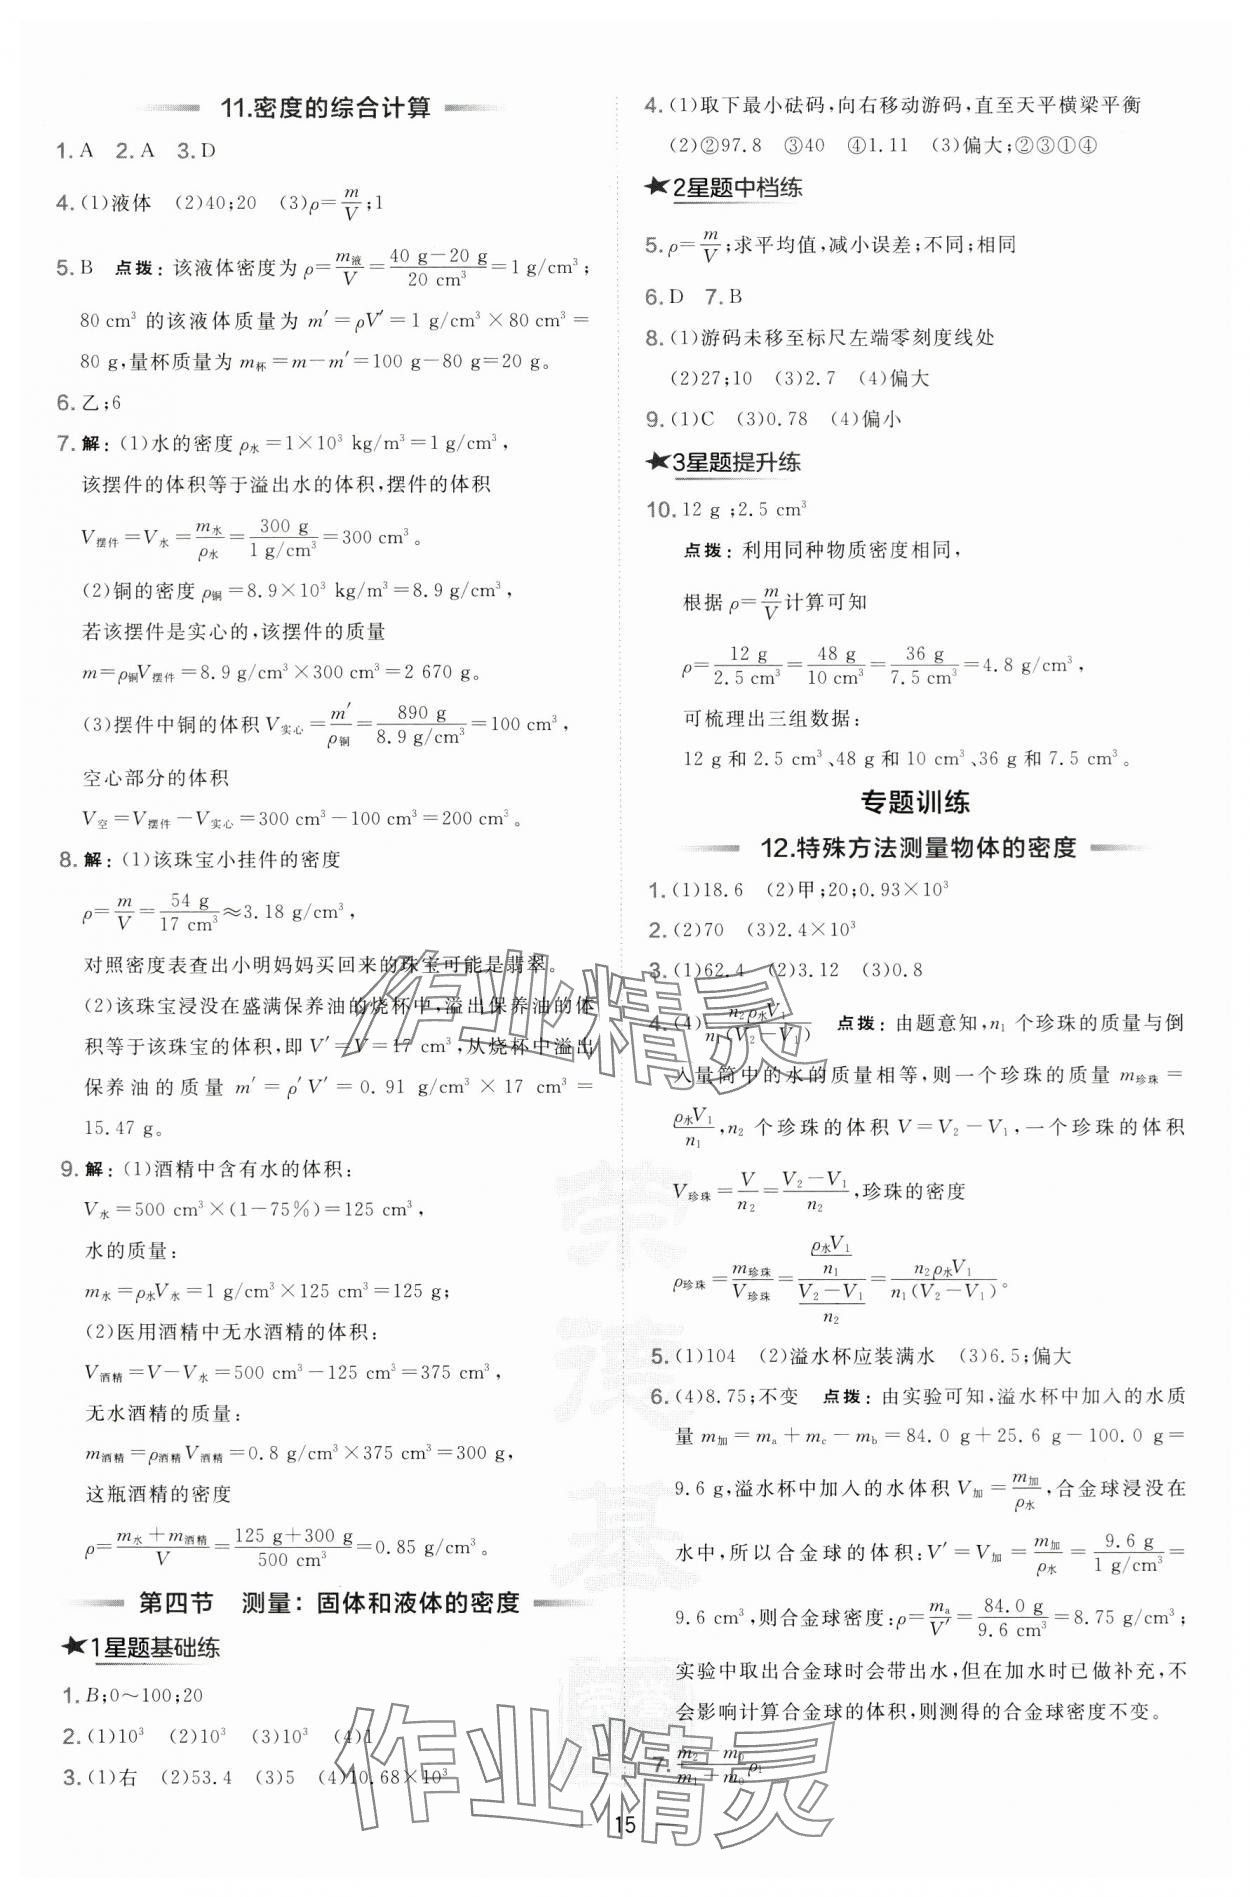 11.密度的综合计算
1. A  2. A  3. D
4. (1)液体  (2)40;20  (3)ρ=m/V;1
5. B  点拨：该液体密度为 ρ=m液/V=(40 g-20 g)/(20 cm³)=1 g/cm³；
80 cm³ 的该液体质量为 m′=ρV′=1 g/cm³×80 cm³=
80 g,量杯质量为 m杯=m-m′=100 g-80 g=20 g。
6. 乙;6
7. 解：(1)水的密度 ρ水=1×10³ kg/m³=1 g/cm³,
该摆件的体积等于溢出水的体积,摆件的体积
V摆件=V水=m水/ρ水=(300 g)/(1 g/cm³)=300 cm³。
(2)铜的密度 ρ铜=8.9×10³ kg/m³=8.9 g/cm³,
若该摆件是实心的,该摆件的质量
m=ρ铜V摆件=8.9 g/cm³×300 cm³=2 670 g。
(3)摆件中铜的体积 V实心=m′/ρ铜=(890 g)/(8.9 g/cm³)=100 cm³,
空心部分的体积
V空=V摆件-V实心=300 cm³-100 cm³=200 cm³。
8. 解：(1)该珠宝小挂件的密度
ρ=m/V=(54 g)/(17 cm³)≈3.18 g/cm³,
对照密度表查出小明妈妈买回来的珠宝可能是翡翠。
(2)该珠宝浸没在盛满保养油的烧杯中,溢出保养油的体
积等于该珠宝的体积,即 V′=V=17 cm³,从烧杯中溢出
保养油的质量 m′=ρ′V′=0.91 g/cm³×17 cm³=
15.47 g。
9. 解：(1)酒精中含有水的体积：
V水=500 cm³×(1-75%)=125 cm³,
水的质量：
m水=ρ水V水=1 g/cm³×125 cm³=125 g;
(2)医用酒精中无水酒精的体积：
V酒精=V-V水=500 cm³-125 cm³=375 cm³,
无水酒精的质量：
m酒精=ρ酒精V酒精=0.8 g/cm³×375 cm³=300 g,
这瓶酒精的密度
ρ=(m水+m酒精)/V=(125 g+300 g)/(500 cm³)=0.85 g/cm³。
第四节  测量：固体和液体的密度
★1星题基础练
1. B;0~100;20
2. (1)10³  (2)10³  (3)10³  (4)1
3. (1)右  (2)53.4  (3)5  (4)10.68×10³
4. (1)取下最小砝码,向右移动游码,直至天平横梁平衡
(2)②97.8  ③40  ④1.11  (3)偏大;②③①④
★2星题中档练
5. ρ=m/V;求平均值,减小误差;不同;相同
6. D  7. B
8. (1)游码未移至标尺左端零刻度线处
(2)27;10  (3)2.7  (4)偏大
9. (1)C  (3)0.78  (4)偏小
★3星题提升练
10. 12 g ;2.5 cm³
点拨：利用同种物质密度相同,
根据 ρ=m/V计算可知
ρ=(12 g)/(2.5 cm³)=(48 g)/(10 cm³)=(36 g)/(7.5 cm³)=4.8 g/cm³,
可梳理出三组数据：
12 g 和 2.5 cm³、48 g 和 10 cm³、36 g 和 7.5 cm³。
专题训练
12.特殊方法测量物体的密度
1. (1)18.6  (2)甲;20;0.93×10³
2. (2)70  (3)2.4×10³
3. (1)62.4  (2)3.12  (3)0.8
4. (4)n₂ρ水V₁/[n₁(V₂-V₁)]  点拨：由题意知,n₁ 个珍珠的质量与倒
入量筒中的水的质量相等,则一个珍珠的质量 m珍珠=
ρ水V₁/n₁,n₂ 个珍珠的体积 V=V₂-V₁,一个珍珠的体积
V珍珠=V/n₂=(V₂-V₁)/n₂,珍珠的密度
ρ珍珠=m珍珠/V珍珠=(ρ水V₁/n₁)/((V₂-V₁)/n₂)=n₂ρ水V₁/[n₁(V₂-V₁)]。
5. (1)104  (2)溢水杯应装满水  (3)6.5;偏大
6. (4)8.75;不变  点拨：由实验可知,溢水杯中加入的水质
量 m加=mₐ+m_c-m_b=84.0 g+25.6 g-100.0 g=
9.6 g,溢水杯中加入的水体积 V加=m加/ρ水,合金球浸没在
水中,所以合金球的体积：V′=V加=m加/ρ水=(9.6 g)/(1 g/cm³)=
9.6 cm³,则合金球密度：ρ=mₐ/V′=(84.0 g)/(9.6 cm³)=8.75 g/cm³;
实验中取出合金球时会带出水,但在加水时已做补充,不
会影响计算合金球的体积,则测得的合金球密度不变。
7. (m₂-m₀)/(m₁-m₀)ρ₁
15
作业精灵
作业精灵
荣德基